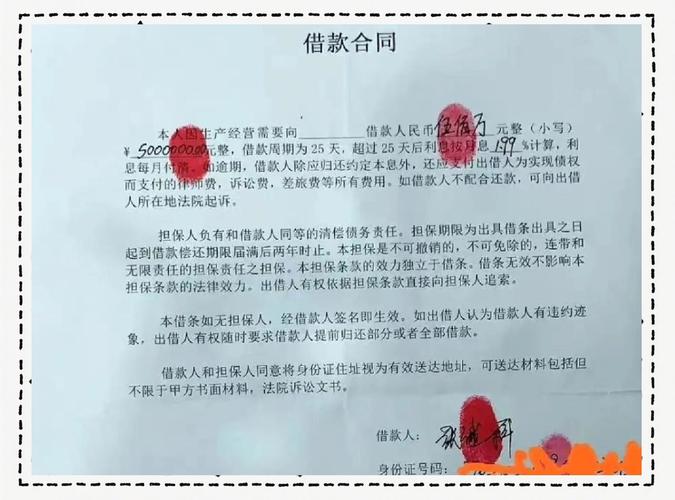 借款合同
本人因生产经营需要向________借款人民币伍佰万元整（小写）
￥5000000.00元整，借款周期为 25 天，超过 25 天后利息按月息 1.99 %计算，利
息每月付清。如逾期，借款人除应归还约定本息外，还应支付出借人为实现债权
而支付的律师费，诉讼费，差旅费等所有费用。如借款人不配合还款，可向出借
人所在地法院起诉。
担保人负有和借款人同等的清偿债务责任。担保期限为出具借条出具之日
起到借款偿还期限届满后两年时止。本担保是不可撤销的，不可免除的，连带和
无限责任的担保责任之担保。本担保条款的效力独立于借条。借条无效不影响本
担保条款的法律效力。出借人有权依据担保条款直接向担保人追索。
本借条如无担保人，经借款人签名即生效。如出借人认为借款人有违约迹
象，出借人有权随时要求借款人提前归还部分或者全部借款。
借款人和担保人同意将身份证住址视为有效送达地址，可送达材料包括但
不限于甲方书面材料，法院诉讼文书。
借款人：张继科
身份证号码：